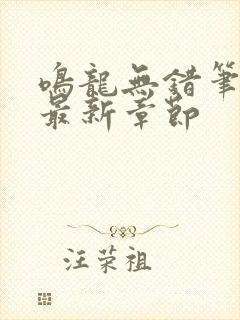 鳴龍無錯筆
最新章節
汪荣祖